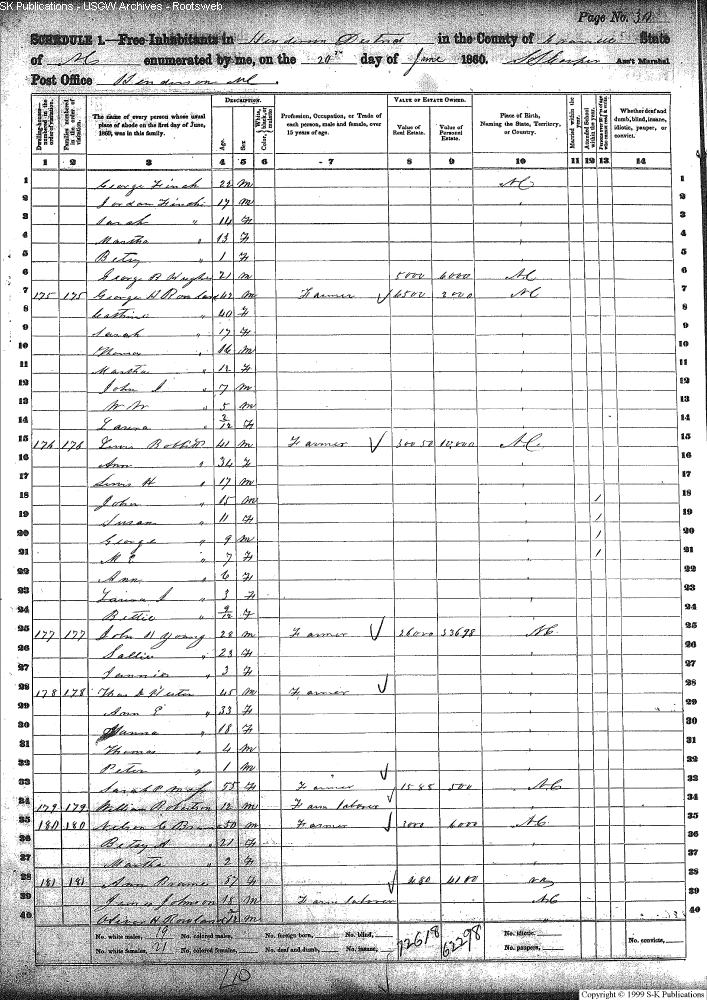 SK Publications - USGW Archives - Rootsweb
Page No. 34
SCHEDULE 1.—Free Inhabitants in Henderson District in the County of Granville State
of NC enumerated by me, on the 20th day of June 1860. Ass't Marshal
Post Office Henderson NC
Dwelling-houses—numbered in the order of visitation.
Families numbered in the order of visitation.
The name of every person whose usual place of abode on the first day of June, 1860, was in this family.
DESCRIPTION.
Age.
Sex.
Color, White, black, or mulatto
Profession, Occupation, or Trade of each person, male and female, over 15 years of age.
VALUE OF ESTATE OWNED.
Value of Real Estate.
Value of Personal Estate.
Place of Birth, Naming the State, Territory, or Country.
Married within the year.
Attended School within the year.
Whether deaf and dumb, blind, insane, idiotic, pauper, or convict.
1 2 3 4 5 6 7 8 9 10 11 12 13 14
1 George Finch 22 m NC 1
2 Jordan Finch 17 m 2
3 Sarah " 14 F 3
4 Martha " 13 F 4
5 Betsy " 1 F 5
6 George B Hughes 21 m 5000 6000 NC 6
7 175 175 George H Rowland 42 m Farmer 6500 2000 NC 7
8 " 40 F 8
9 Sarah " 17 F 9
10 Thomas " 14 m 10
11 Martha " 12 F 11
12 John S " 7 m 12
13 W W " 5 m 13
14 " 2/12 F 14
15 176 176 Lewis Bobbitt 41 m Farmer 30050 10,000 NC 15
16 Ann " 34 F 16
17 Lewis H " 17 m 17
18 John " 15 m 1 18
19 Susan " 11 F 1 19
20 George " 9 m 1 20
21 M E " 7 F 1 21
22 Ann " 6 F 22
23 " 3 F 23
24 Bettie " 9/12 F 24
25 177 177 John H Young 28 m Farmer 26000 33698 NC 25
26 Sallie " 23 F 26
27 Fannie " 3 F 27
28 178 178 45 m Farmer 28
29 Ann E " 33 F 29
30 " 18 F 30
31 Thomas " 4 m 31
32 Peter " 1 m 32
33 Sarah P 55 F Farmer 1588 500 NC 33
34 179 179 William Robertson 12 m Farm laborer 34
35 180 180 Nelson C 50 m Farmer 3000 6000 NC 35
36 Betsy A " 21 F 36
37 Martha " 2 F 37
38 181 181 Ann 57 F 480 4100 Va 38
39 James Johnson 18 m Farm laborer NC 39
40 Oliver H Rowland m 40
No. white males, 19 No. colored males, No. foreign born, No. blind, 72618 62298 No. idiotic, No. convicts,
No. white females, 21 No. colored females, No. deaf and dumb, No. insane, No. paupers,
40
Copyright © 1999 S-K Publications